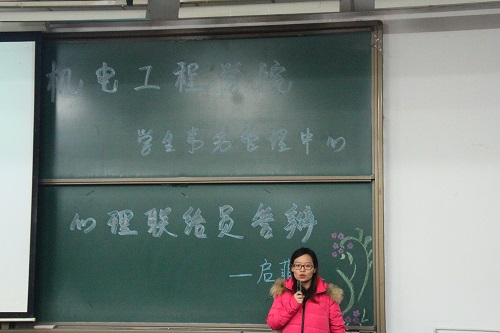 机电工程学院
学生事务管理中心
心理联络员答辩
—启